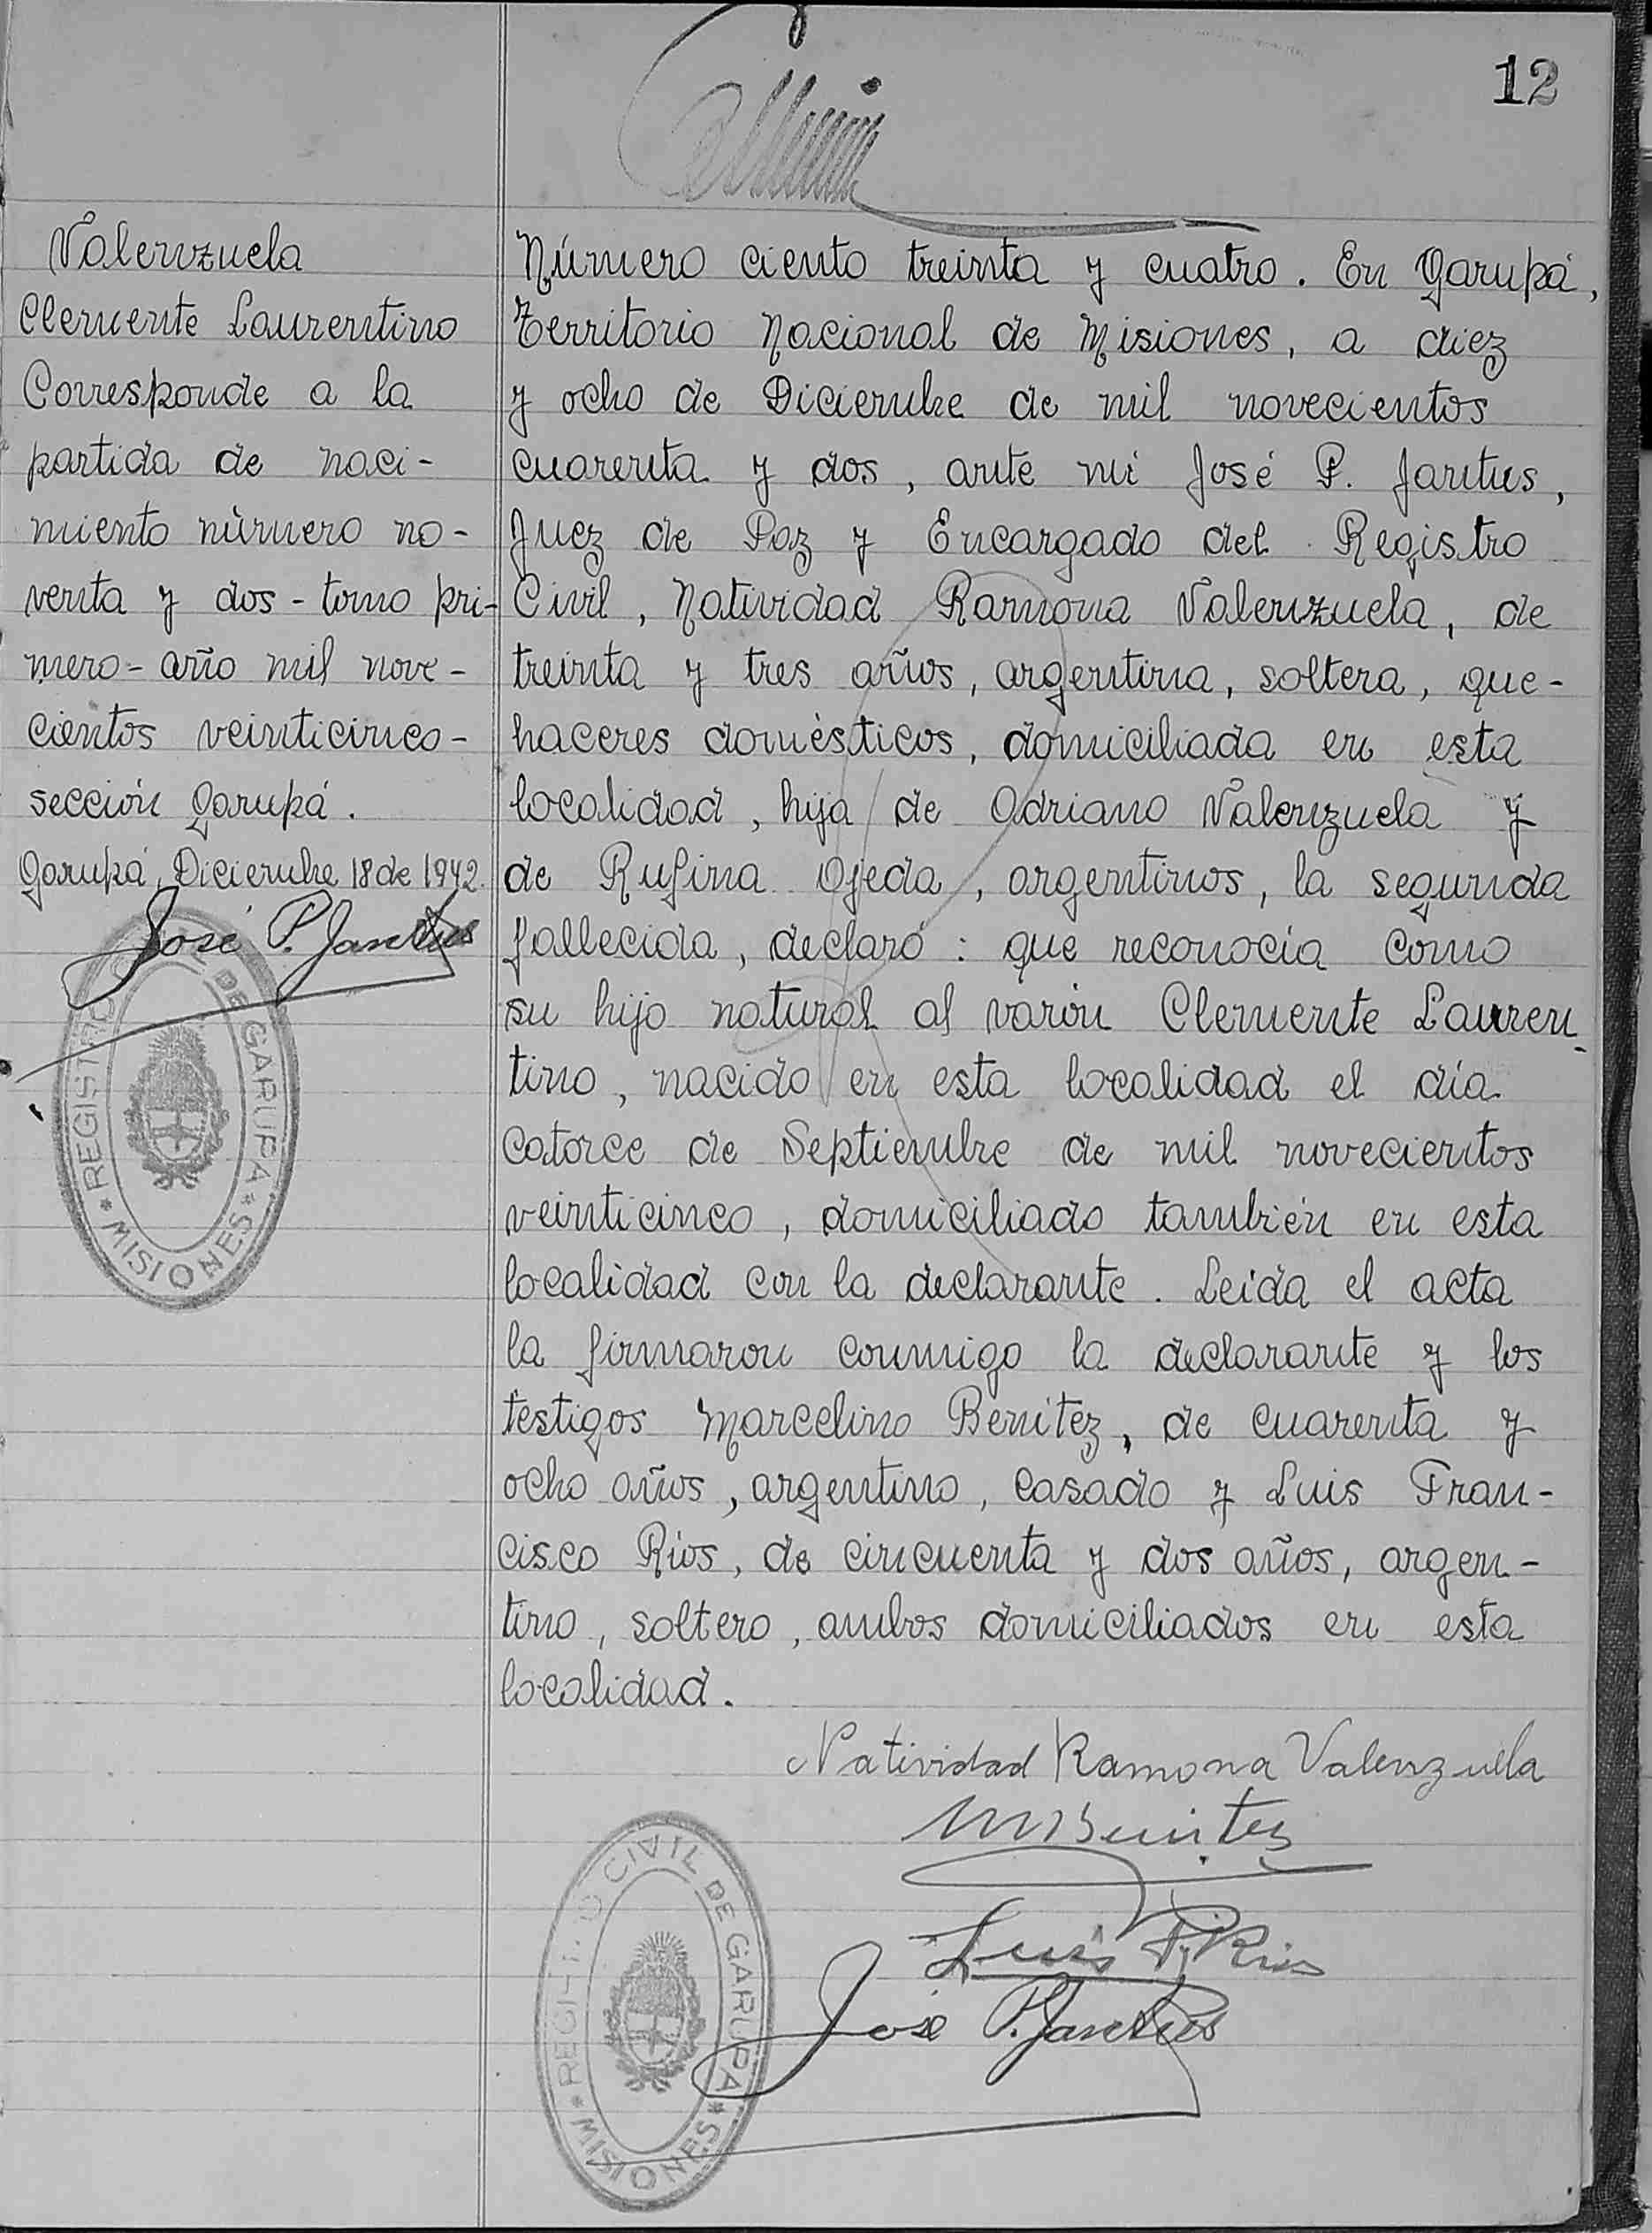 12
Valenzuela
Clemente Laurentino
Corresponde a la
partida de naci-
miento nùmero no-
venta y dos - tomo pri-
mero - año mil nove-
cientos veinticinco -
sección Garupá.
Garupá, Diciembre 18 de 1942.
José P. Jantus
REGISTRO DE GARUPA
* MISIONES *
Número ciento treinta y cuatro. En Garupá,
Territorio Nacional de Misiones, a diez
y ocho de Diciembre de mil novecientos
cuarenta y dos, ante mi José P. Jantus,
Juez de Paz y Encargado del Registro
Civil, Natividad Ramona Valenzuela, de
treinta y tres años, argentina, soltera, que-
haceres domèsticos, domiciliada en esta
localidad, hija de Adriano Valenzuela y
de Rufina Ojeda, argentinos, la segunda
fallecida, declaró: que reconocía como
su hijo natural al varón Clemente Lauren-
tino, nacido en esta localidad el día
catorce de Septiembre de mil novecientos
veinticinco, domiciliado también en esta
localidad con la declarante. Leída el acta
la firmaron conmigo la declarante y los
testigos Marcelino Benítez, de cuarenta y
ocho años, argentino, casado y Luis Fran-
cisco Ríos, de cincuenta y dos años, argen-
tino, soltero, ambos domiciliados en esta
localidad.
Natividad Ramona Valenzuela
M Benitez
Luis F. Rios
José P. Jantus
REGISTRO CIVIL DE GARUPA
* MISIONES *